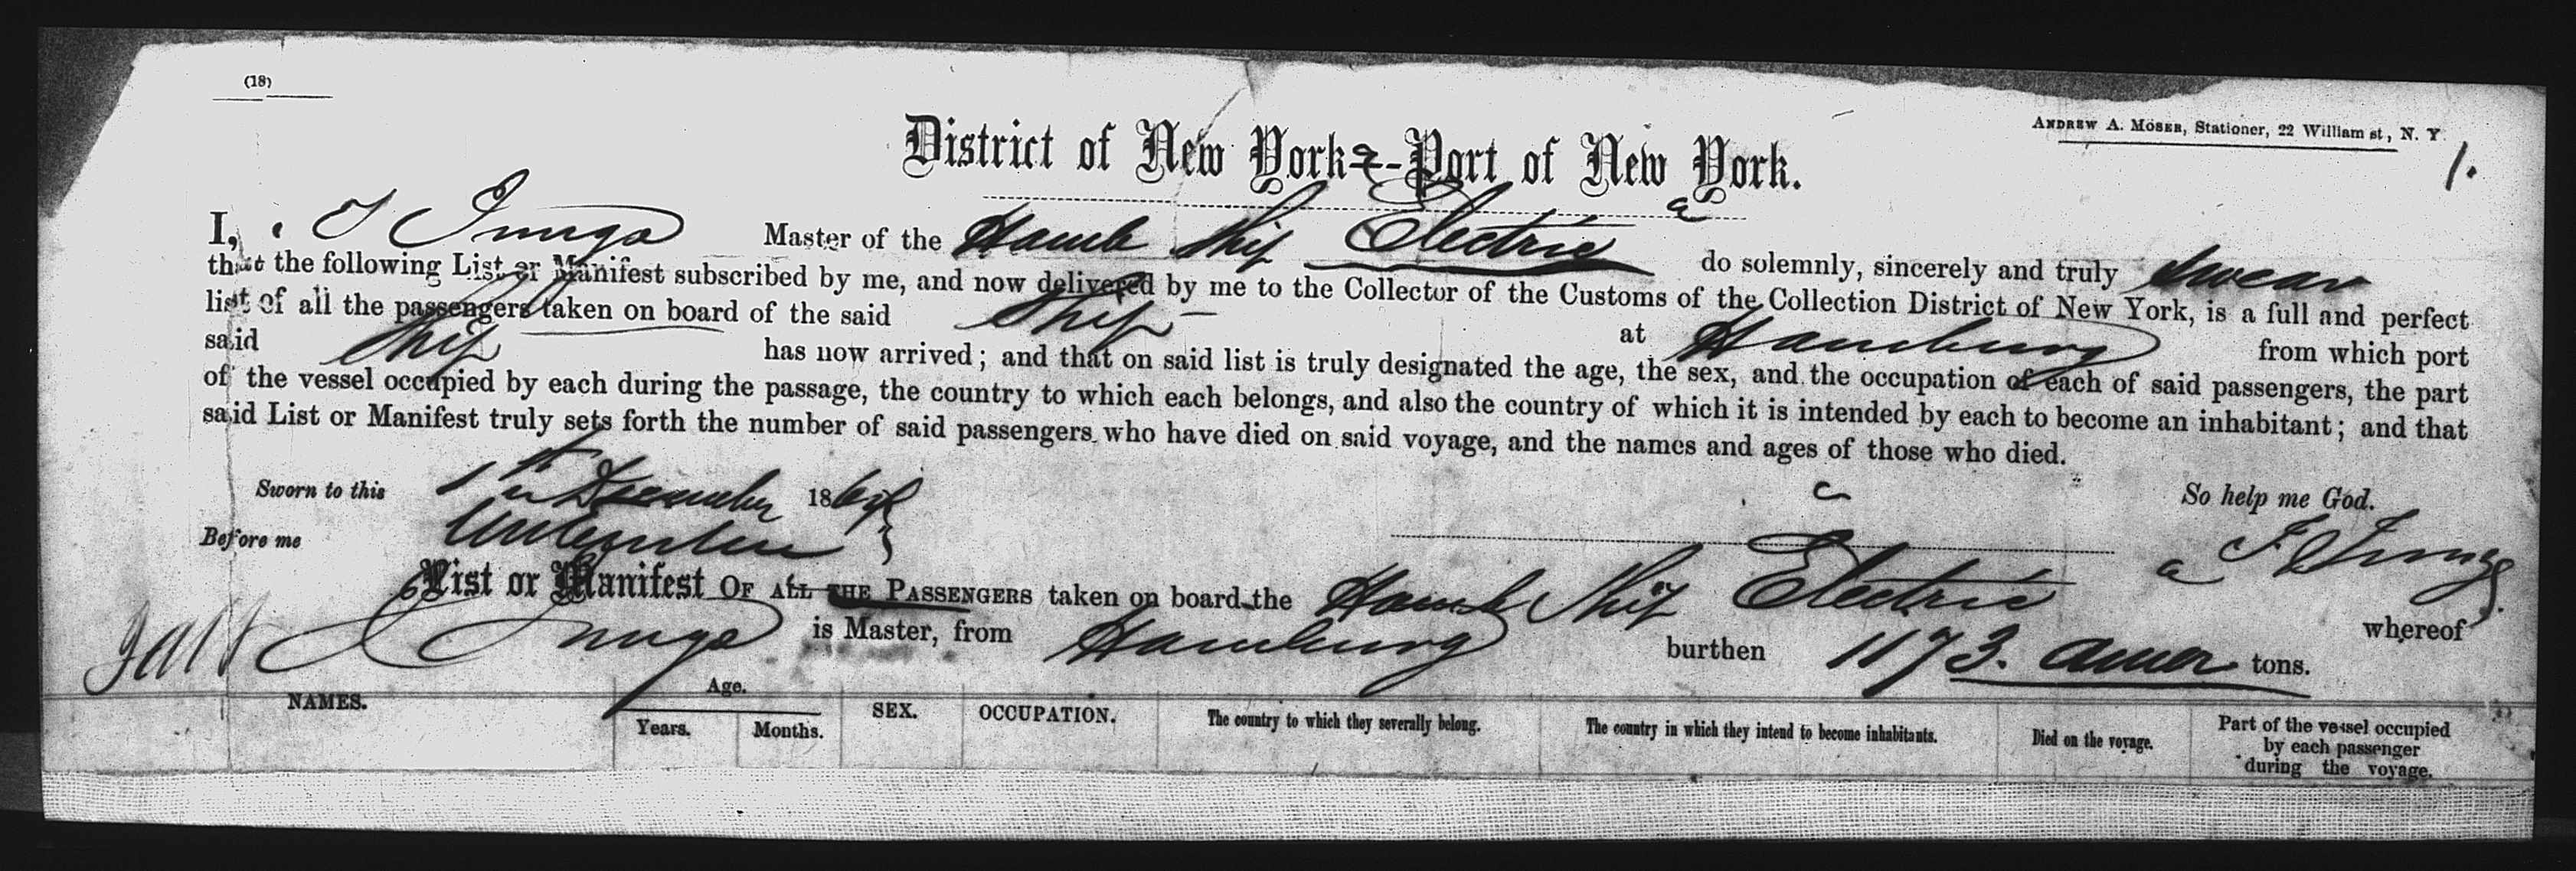 (18)
ANDREW A. MOSER, Stationer, 22 William st, N. Y.
1.
District of New York--Port of New York.
I, Junge Master of the Hamb Ship Electric do solemnly, sincerely and truly swear
that the following List or Manifest subscribed by me, and now delivered by me to the Collector of the Customs of the Collection District of New York, is a full and perfect
list of all the passengers taken on board of the said Ship at Hamburg from which port
said Ship has now arrived; and that on said list is truly designated the age, the sex, and the occupation of each of said passengers, the part
of the vessel occupied by each during the passage, the country to which each belongs, and also the country of which it is intended by each to become an inhabitant; and that
said List or Manifest truly sets forth the number of said passengers who have died on said voyage, and the names and ages of those who died.
Sworn to this 1st December 186 So help me God.
Before me J. Junge
List or Manifest OF ALL THE PASSENGERS taken on board the Hamb Ship Electric whereof
Junge is Master, from Hamburg burthen 1173. Amer tons.
NAMES. Age. SEX. OCCUPATION. The country to which they severally belong. The country in which they intend to become inhabitants. Died on the voyage. Part of the vessel occupied
Years. Months. by each passenger
during the voyage.